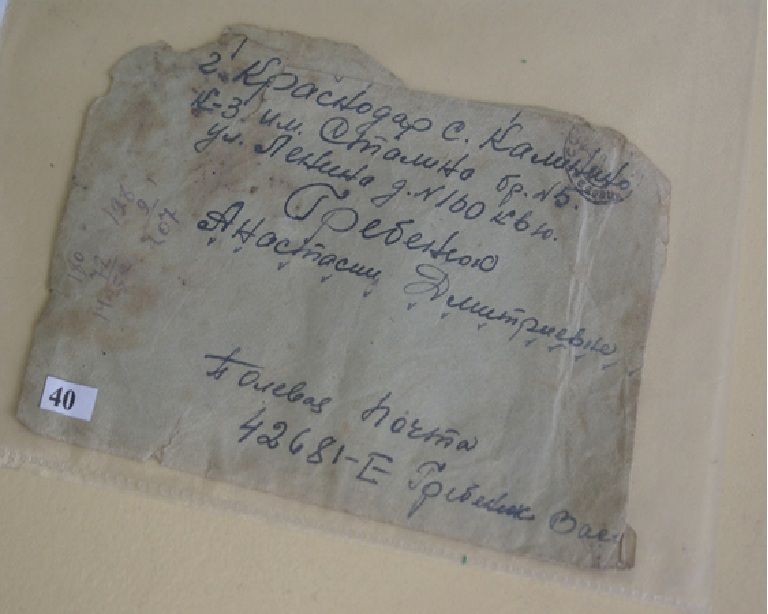 г. Краснодар с. Калинино
К-3 им. Сталина бр. №5.
ул. Ленина д. №160 кв
Гребенюк
Анастасии Дмитриевне
Полевая почта
42681-Е Гребенюк Вас.
126
9
207
40